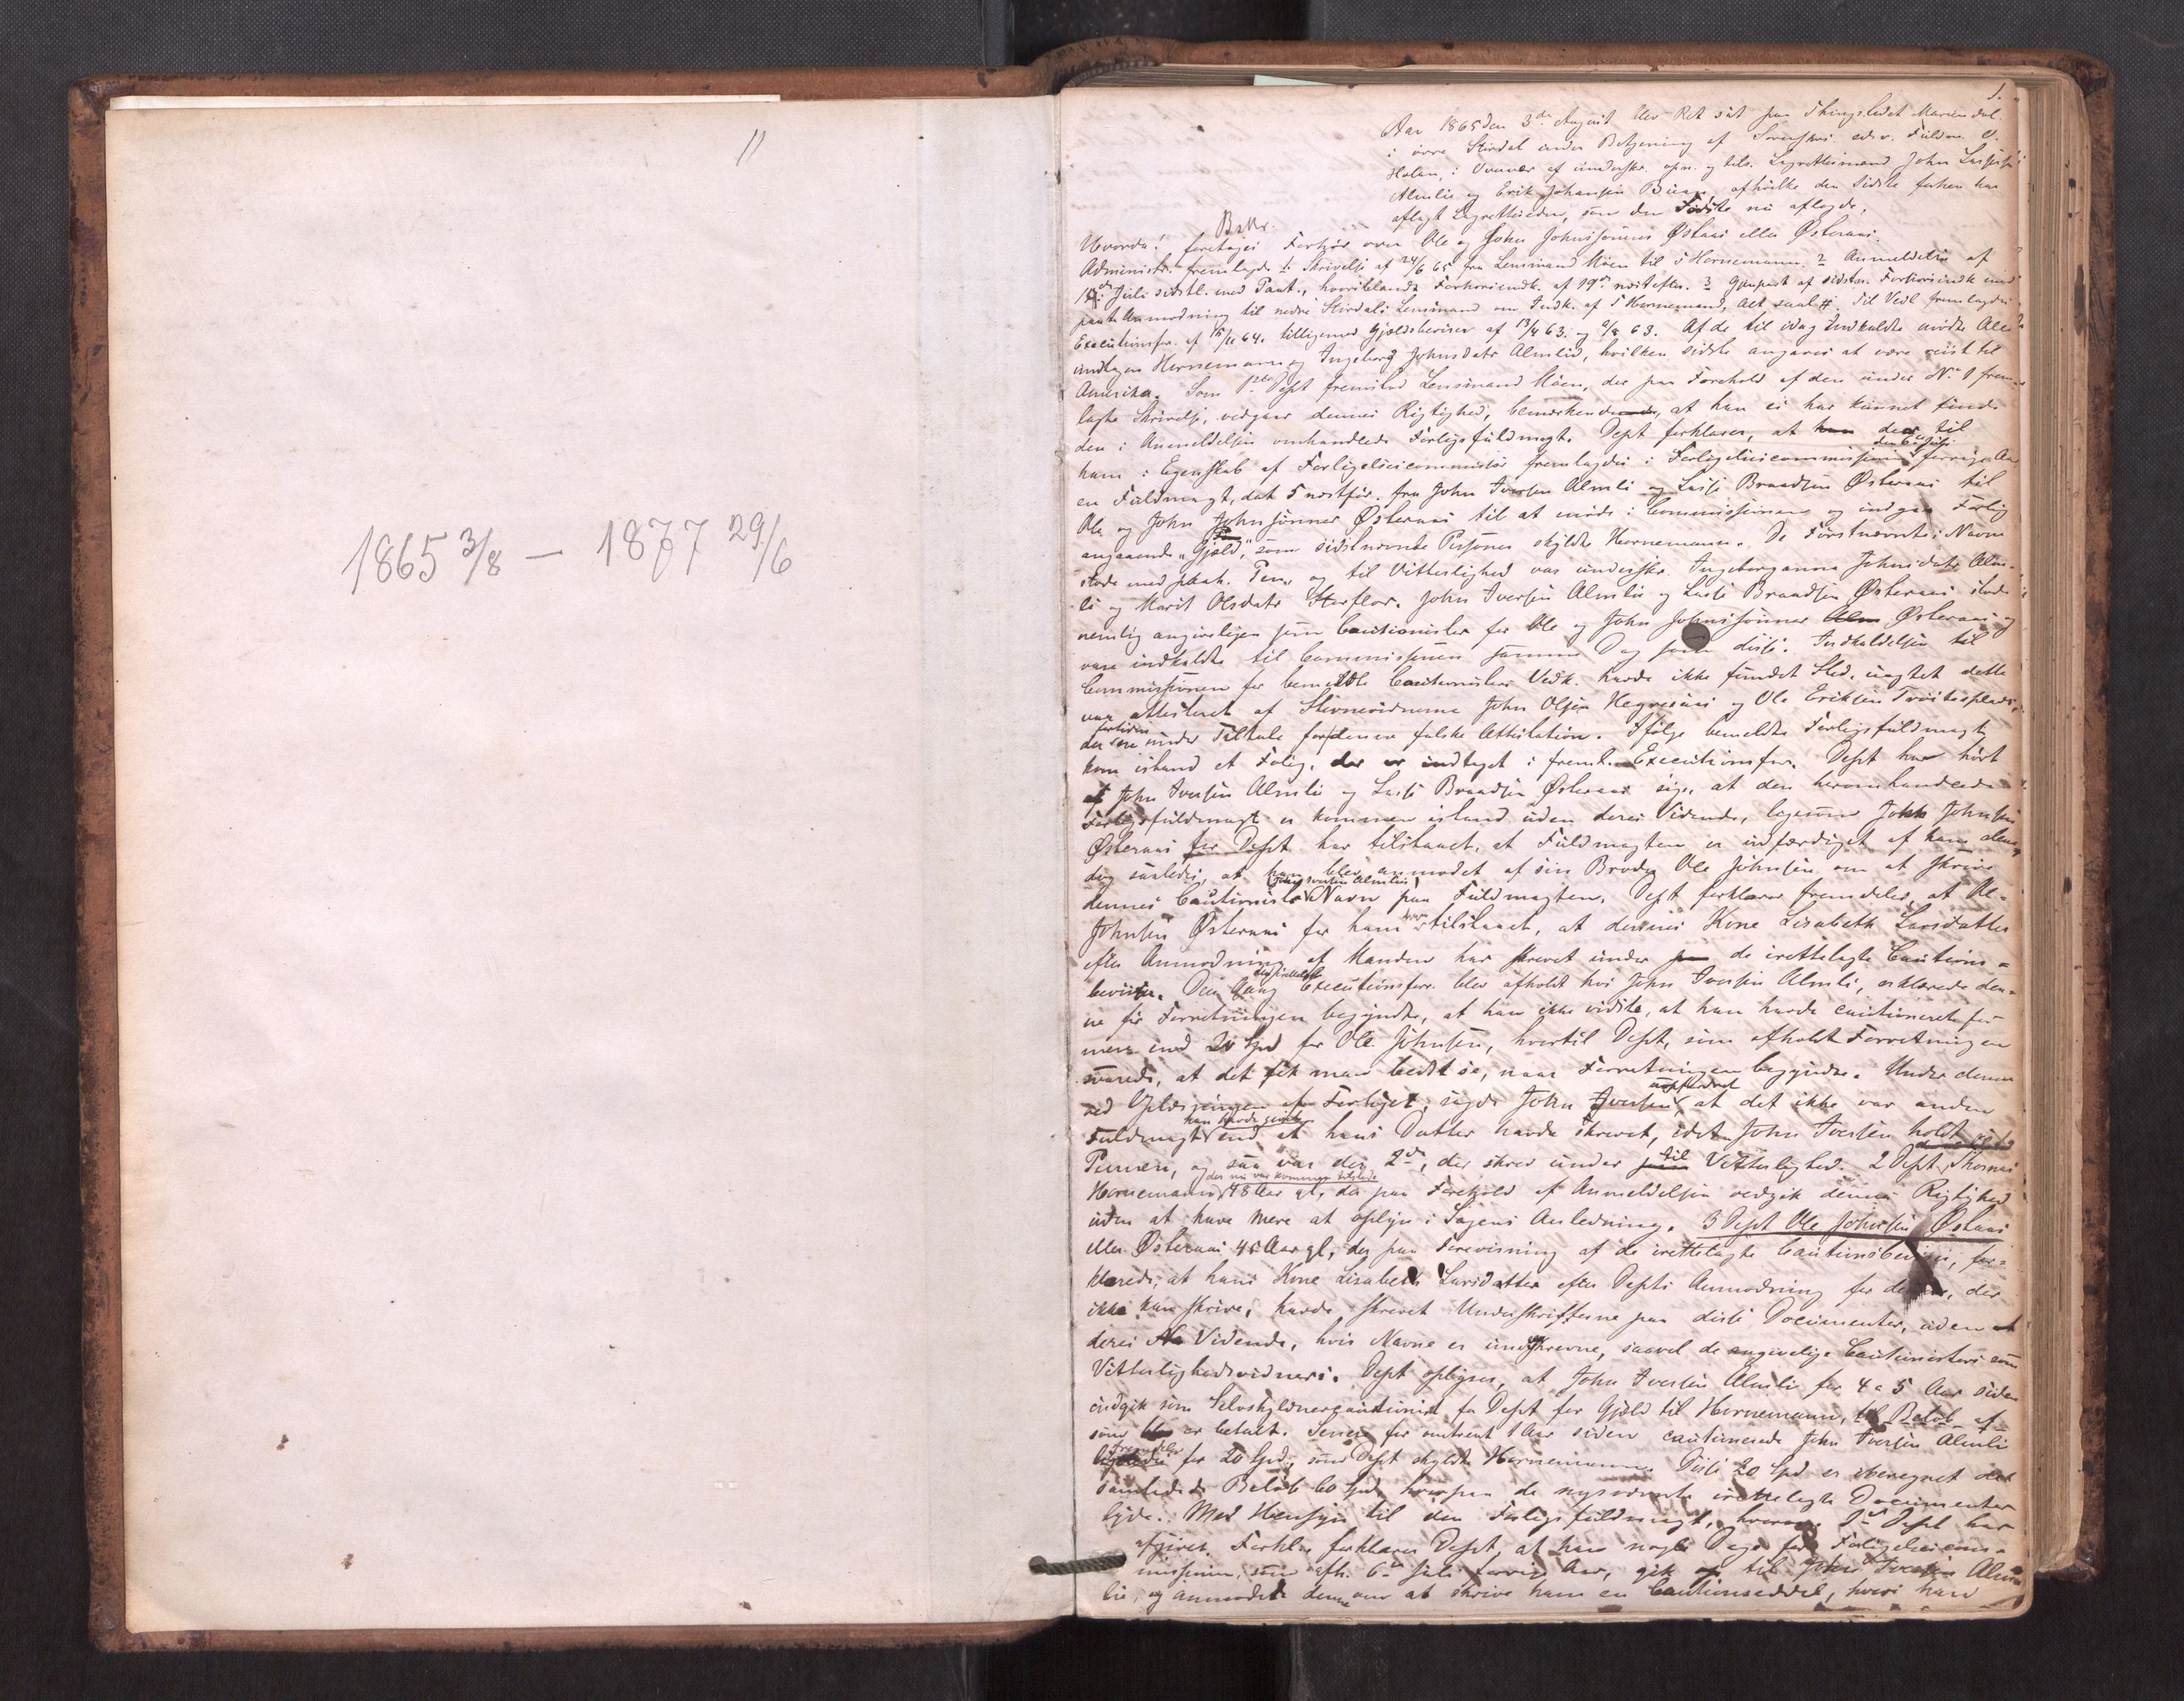 11
1865 3/8 – 1877 29/6
1.
Aar 1865 den 3de August blev Ret sat paa Thingstedet Mariendal
i øvre Størdal under Betjening af Sorenskr. edsv. Fuldm. O.
Holan, i Overvær af underskr. opn. og tils. Lagrettemænd John
Almlie og Erik Johansen af hvilke den Sidste forhen har
aflagt Lagretteeden, som den Første nu aflagde,
Hvorda! foretoges Forhør over Ole og John Johnsønner Østeraas.
Administr. fremlagde 1 Skrivelse af 24/6 65 fra Lensmand Moen til T Hornemann. 2 Anmeldelse af
Juli sidstl. med Paat., hvoriblandt Forhørsindk. af 19de næstefter. 3 Gjenpart af sidstn. Forhørsindk. med
paat. Anmodning til nedre Størdals Lensmand om Indk. af T Hornemand, Alt saal #. Til Vedl. fremlagdes
Executionsforr. af 64. tilligemed Gjældsbeviser af 13/4 63. og 63. Af de til idag Indkaldte mødte Alle
undtagen Hornemann og Ingeborg Johnsdatr Almlid, hvilken sidste angaves at være reist til
Amerika. Som Dept fremstod Lensmand Moen, der paa Forehold af den under No 1 frem-
lagte Skrivelse, vedgaar dennes Rigtighed, bemærkende, at han ei har kunnet finde
den i Anmeldelsen omhandlede Forligsfuldmagt. Dept forklarer, at der til
ham i Egenskab af Forligelsescommissær fremlagdes i Forligelsescommissionen forrige Aar
en Fuldmagt, dat 5 næstfør. fra John Iversen Almli og Lasse Braadsen Østeraas til
Ole og John Johnsønner Østeraas til at møde i Commissionen og indgaa Forlig
angaaende "Gjæld", som sidstnævnte Personer skyldte Hornemann. De Førstnævntes Navn
stode med paah. Pen, og til Vitterlighed var underskr. Ingeboranna Johnsdatr Alm-
li og Marit Olsdatr Storflor. John Iversen Almlie og Lasse Braadsen Østeraas stode
nemlig angiveligen som Cautionister for Ole og John Johnsønner Østeraas og
vare indkaldte til Commissionen samme Dag som disse. Indkaldelsen til
Commissionen for bemeldte Cautionisters Vedk. havde ikke fundet Sted, uagtet dette
var attesteret af Stevnevidnerne John Olsen Hegvisaas og Ole Eriksen
der ere under Tiltale for denne falske Attestation. Ifølge bemeldte Forligsfuldmagt
kom istand et Folig, der er indtaget i freml. Executionsforr. Dept har hørt
af John Iversen Almli og Lasse Braadsen Østeraas sige, at den heromhandlede
Forligsfuldmagt er kommen istand uden deres Vidende, ligesom John Johnsen
Østeraas for Dept har tilstaaet, at Fuldmagten er udfærdiget af ham alene,
dog saaledes, at han blev anmodet af sin Broder Ole Johnsen om at skrive
dennes Cautionists (John Iversen Almlies) Navn paa Fuldmagten. Dept forklarer fremdeles, at Ole
Johnsen Østeraas for ham har tilstaaet, at dennes Kone Lisabeth Larsdatter
efter Anmodning af Manden har skrevet under de irettelagte Cautions-
beviser. Den Gang Executionsforr. blev afholdt hos John Iversen Almli, erklærede den-
ne før Forretningen begyndte, at han ikke vidste, at han havde cautioneret for
mere end 20 Spd for Ole Johnsen, hvortil Dept, som afholdt Forretningen
svarede, at det fik man bedst se, naar Forretningen begyndte. Under denne
ved Oplæsningen af Forliget, sagde John Iversen uopfordret, at det ikke var anden
Fuldmagt han havde givet end at hans Datter havde skrevet, idet John Iversen holdt
Pennen, og saa var der 2de, der skrev under til Vitterlighed. 2 Dept, Thomas
Hornemann, der nu var kommen tilstede 48 Aar gl, der paa Forehold af Anmeldelsen vedgik dennes Rigtighed
uden at have mere at oplyse i Sagens Anledning. 3 Dept Ole Johnsen Østaas
eller Østeraas 45 Aar gl, der paa Forevisning af de irettelagte Cautionsbeviser, for-
klarede, at hans Kone Lisabeth Larsdatter efter Depts Anmodning for denne, der
ikke kan skrive, havde skrevet Underskrifterne paa disse Documenter, uden
deres Vidende, hvis Navne er underskrevne, saavel de angivelige Cautionisters som
Vitterlighedsvidners. Dept oplyser, at John Iversen Almlie for 4 a 5 Aar siden
indgik som Selvskyldnercautionist for Dept for Gjæld til Hornemann,
som er betalt. Senere for omtrent 1 Aar siden cautionerede John Iversen Almli
fremdeles for 20 Spd, som Dept skyldte Hornemann. Disse 20 Spd er iberegnet det
samlede Beløb 60 Spd, hvorpaa de nysnævnte irettelagte Documenter
lyde. Med Hensyn til den Forligsfuldmagt, hvorom 1ste Dept har
afgivet Forklar. forklarer Dept, at han nogle Dage før Forligelsescom-
missionen, som afh. 6te Juli forrige Aar, gik til John Iversen Alm-
lie, og anmodede denne om at skrive ham en Cautionsseddel, hvori han